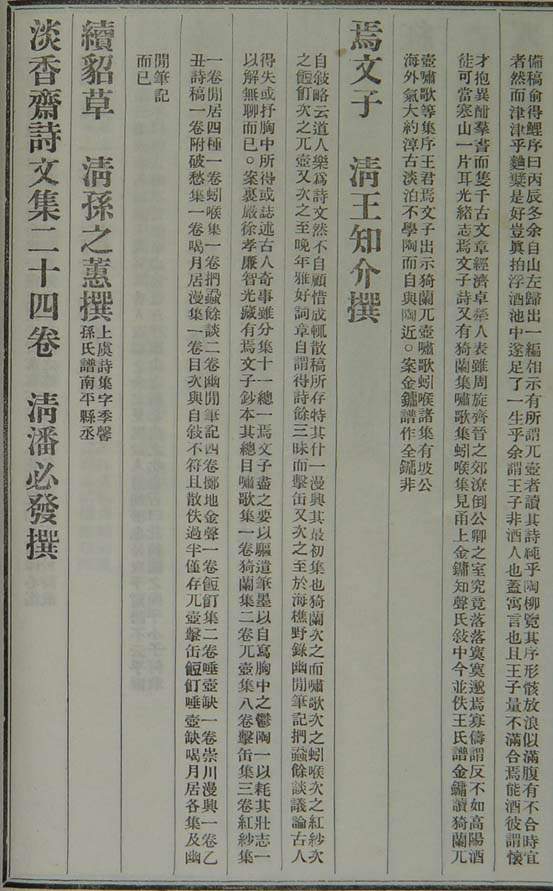 備稿俞得鯉序曰丙辰冬余自山左歸出一編相示有所謂兀壺者讀其詩純乎陶柳覽其序形骸放浪似滿腹有不合時宜
者然而津津乎麯糱是好豈眞拍浮酒池中遂足了一生乎余謂王子非酒人也蓋寓言也且王子量不滿合焉能酒彼謂懷
才抱異酣羣書而隻千古文章經濟卓犖人表雖周旋齊晉之郊潦倒公卿之室究竟落落寞寞邈焉寡儔謂反不如高陽酒
徒可當寒山一片耳光緒志焉文子詩又有猗蘭集嘯歌集蚓喉集見甬上金鏞知聲氏敍中今並佚王氏譜金鏞讀猗蘭兀
壺嘯歌等集序王君焉文子出示猗蘭兀壺嘯歌蚓喉諸集有坡公
海外氣大約淳古淡泊不學陶而自與陶近○案金鏞譜作全鏞非
焉文子　淸王知介撰
自敍略云道人樂爲詩文然不自顧惜成輒散稿所存特其什一漫興其最初集也猗蘭次之而嘯歌次之蚓喉次之紅紗次
之餖飣次之兀壺又次之至晚年雅好詞章自謂得詩餘三昧而擊缶又次之至於海樵野錄幽閒筆記捫蝨餘談議論古人
得失或抒胸中所得或誌述古人奇事雖分集十一總一焉文子盡之要以驅遣筆墨以自寫胸中之鬱陶一以耗其壯志一
以解無聊而已○案裏嚴徐孝廉智光藏有焉文子鈔本其總目嘯歌集一卷猗蘭集二卷兀壺集八卷擊缶集三卷紅紗集
一卷閒居四種一卷蚓喉集一卷捫蝨餘談二卷幽閒筆記四卷擲地金聲一卷餖飣集二卷唾壺缺一卷崇川漫興一卷乙
丑詩稿一卷附破愁集一卷喝月居漫集一卷目次與自敍不符且散佚過半僅存兀壺擊缶餖飣唾壺缺喝月居各集及幽
閒筆記
而已
續貂草　淸孫之蕙撰上虞詩集字季馨
孫氏譜南平縣丞
淡香齋詩文集二十四卷　淸潘必發撰